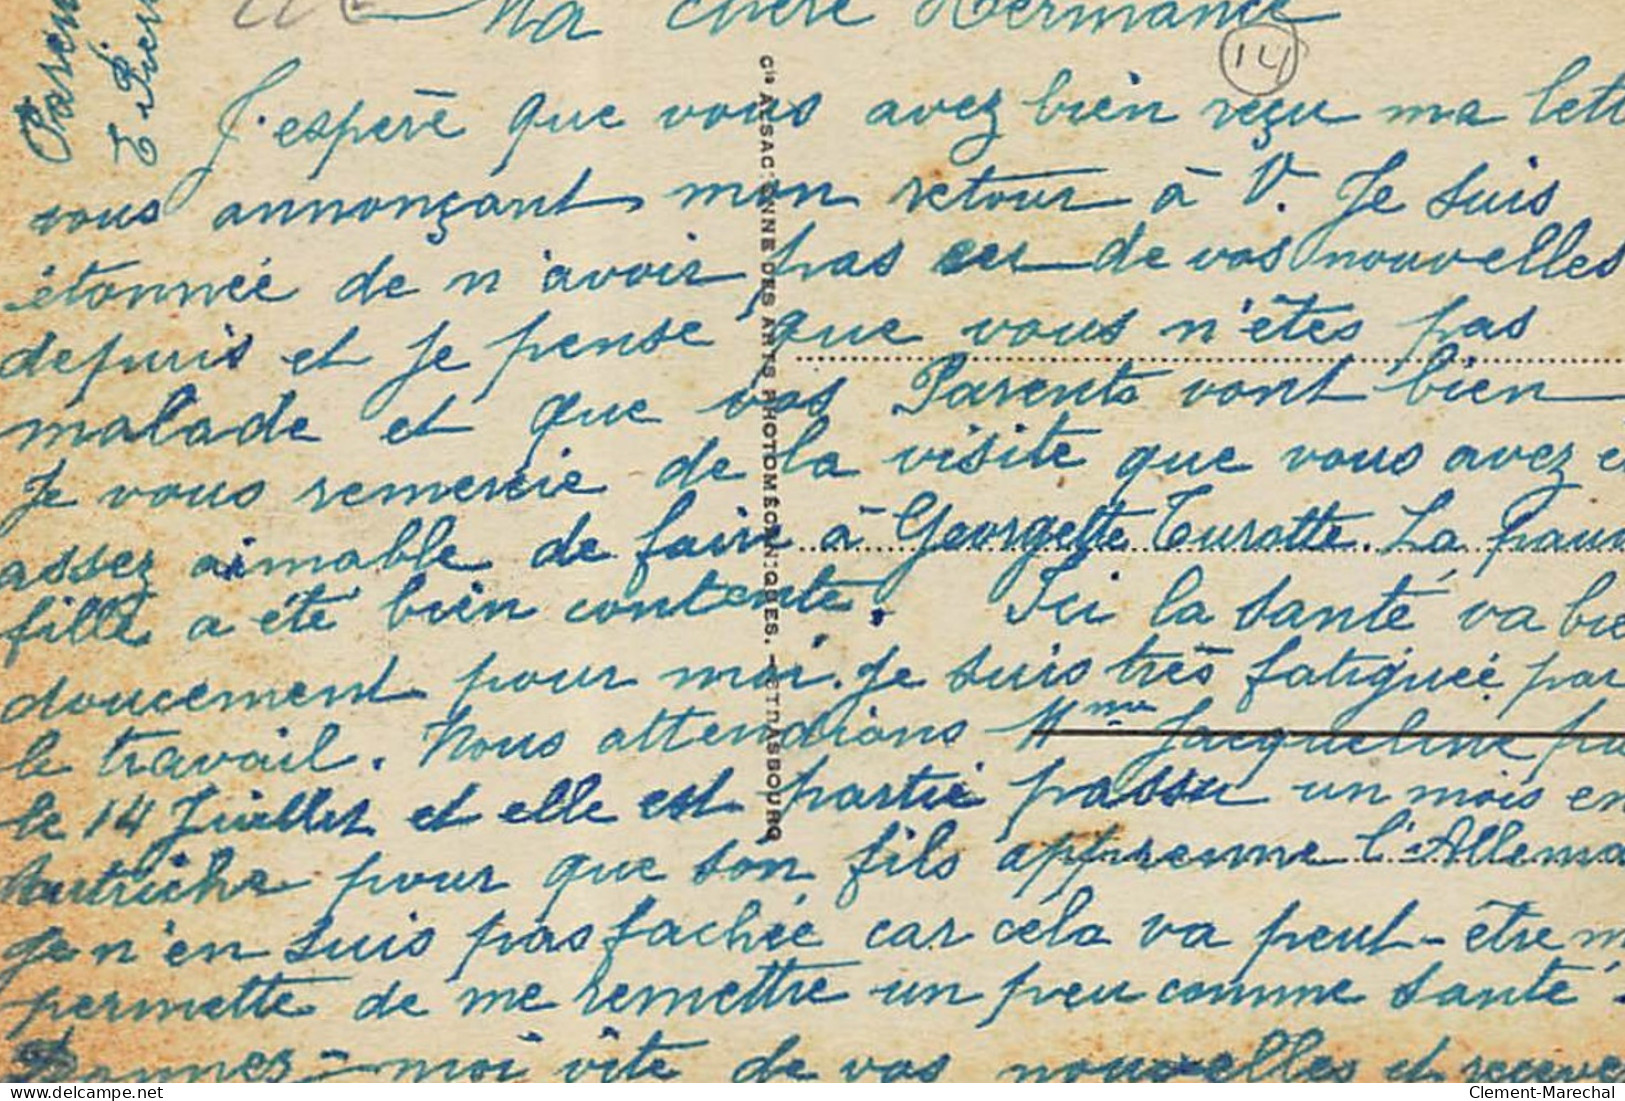 Ma chère Hermance
14
J'espère que vous avez bien reçu ma lett
vous annonçant mon retour à V. Je suis
étonnée de n'avoir pas eu de vos nouvelles
depuis et je pense que vous n'êtes pas
malade et que vos Parents vont bien
Je vous remercie de la visite que vous avez e
assez aimable de faire à Georgette Turotte. La pauv
fille a été bien contente. Ici la santé va bie
doucement pour moi. Je suis très fatiguée par
le travail. Nous attendions Mme Jacqueline pu
le 14 Juillet et elle est partie passer un mois en
Autriche pour que son fils apprenne l'Allema
je n'en suis pas fachée car céla va peut-être m
permettre de me remettre un peu comme santé.
Donnez-moi vite de vos nouvelles et receve
Cie ALSACIENNE DES ARTS PHOTOMÉCANIQUES. - STRASBOURG
Clement-Marechal